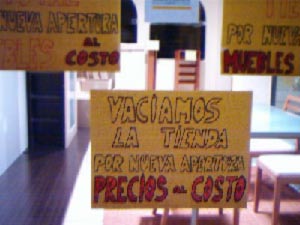 NUEVA APERTURA
MUEBLES AL COSTO
POR NUEVA
MUEBLES
VACIAMOS
LA TIENDA
POR NUEVA APERTURA
PRECIOS AL COSTO